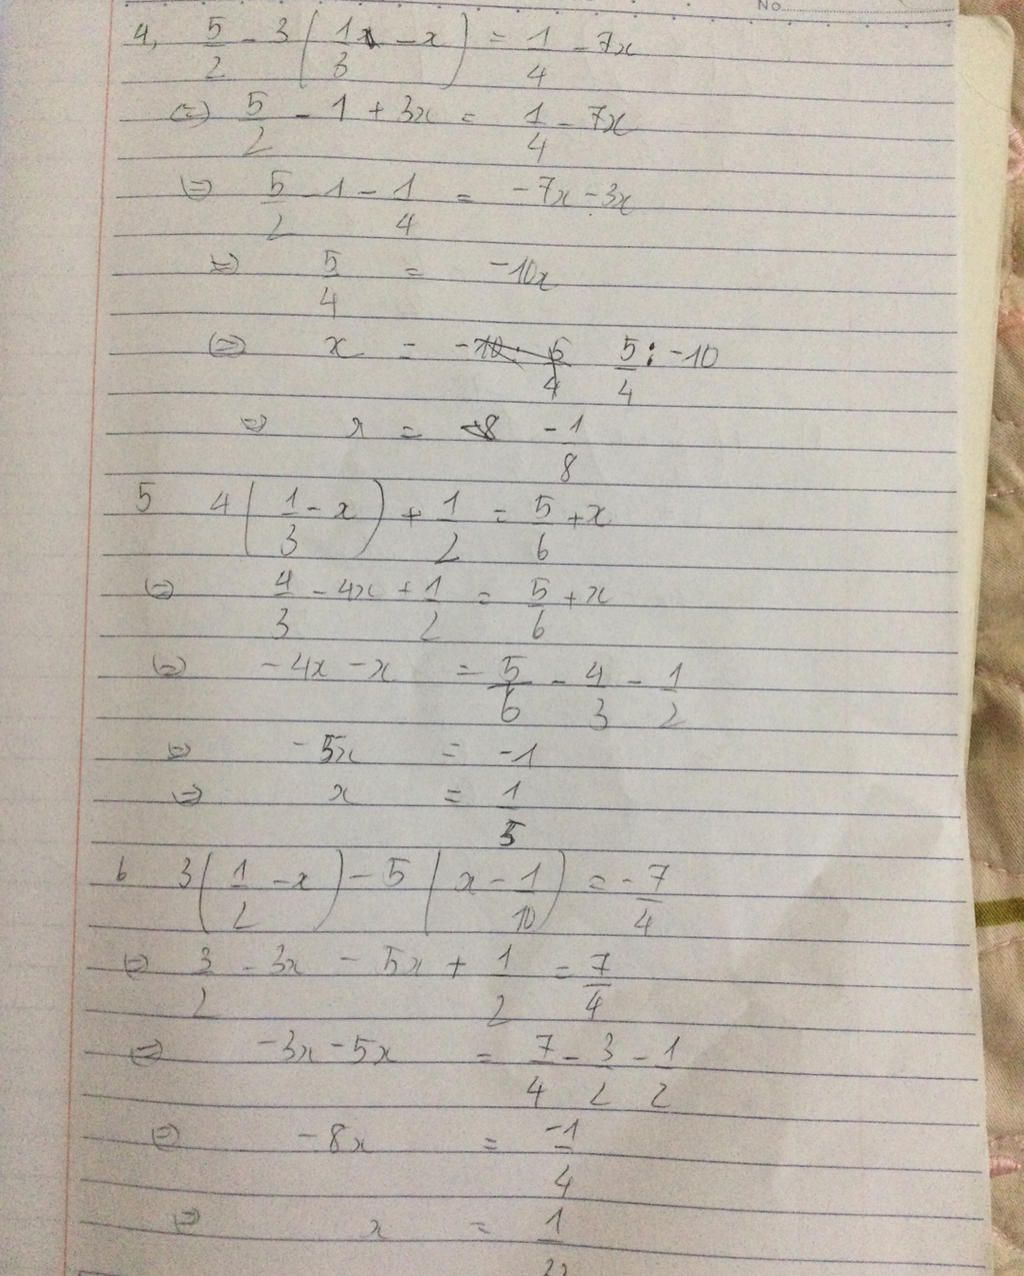 No
4, 5/2 - 3(1/3 - x) = 1/4 - 7x
(=) 5/2 - 1 + 3x = 1/4 - 7x
(=) 5/2 - 1 - 1/4 = -7x - 3x
(=) 5/4 = -10x
(=) x = 5/4 : -10
(=) x = -1/8
5 4(1/3 - x) + 1/2 = 5/6 + x
(=) 4/3 - 4x + 1/2 = 5/6 + x
(=) -4x - x = 5/6 - 4/3 - 1/2
(=) -5x = -1
(=) x = 1/5
6 3(1/2 - x) - 5(x - 1/10) = -7/4
(=) 3/2 - 3x - 5x + 1/2 = 7/4
(=) -3x - 5x = 7/4 - 3/2 - 1/2
(=) -8x = -1/4
(=) x = 1/